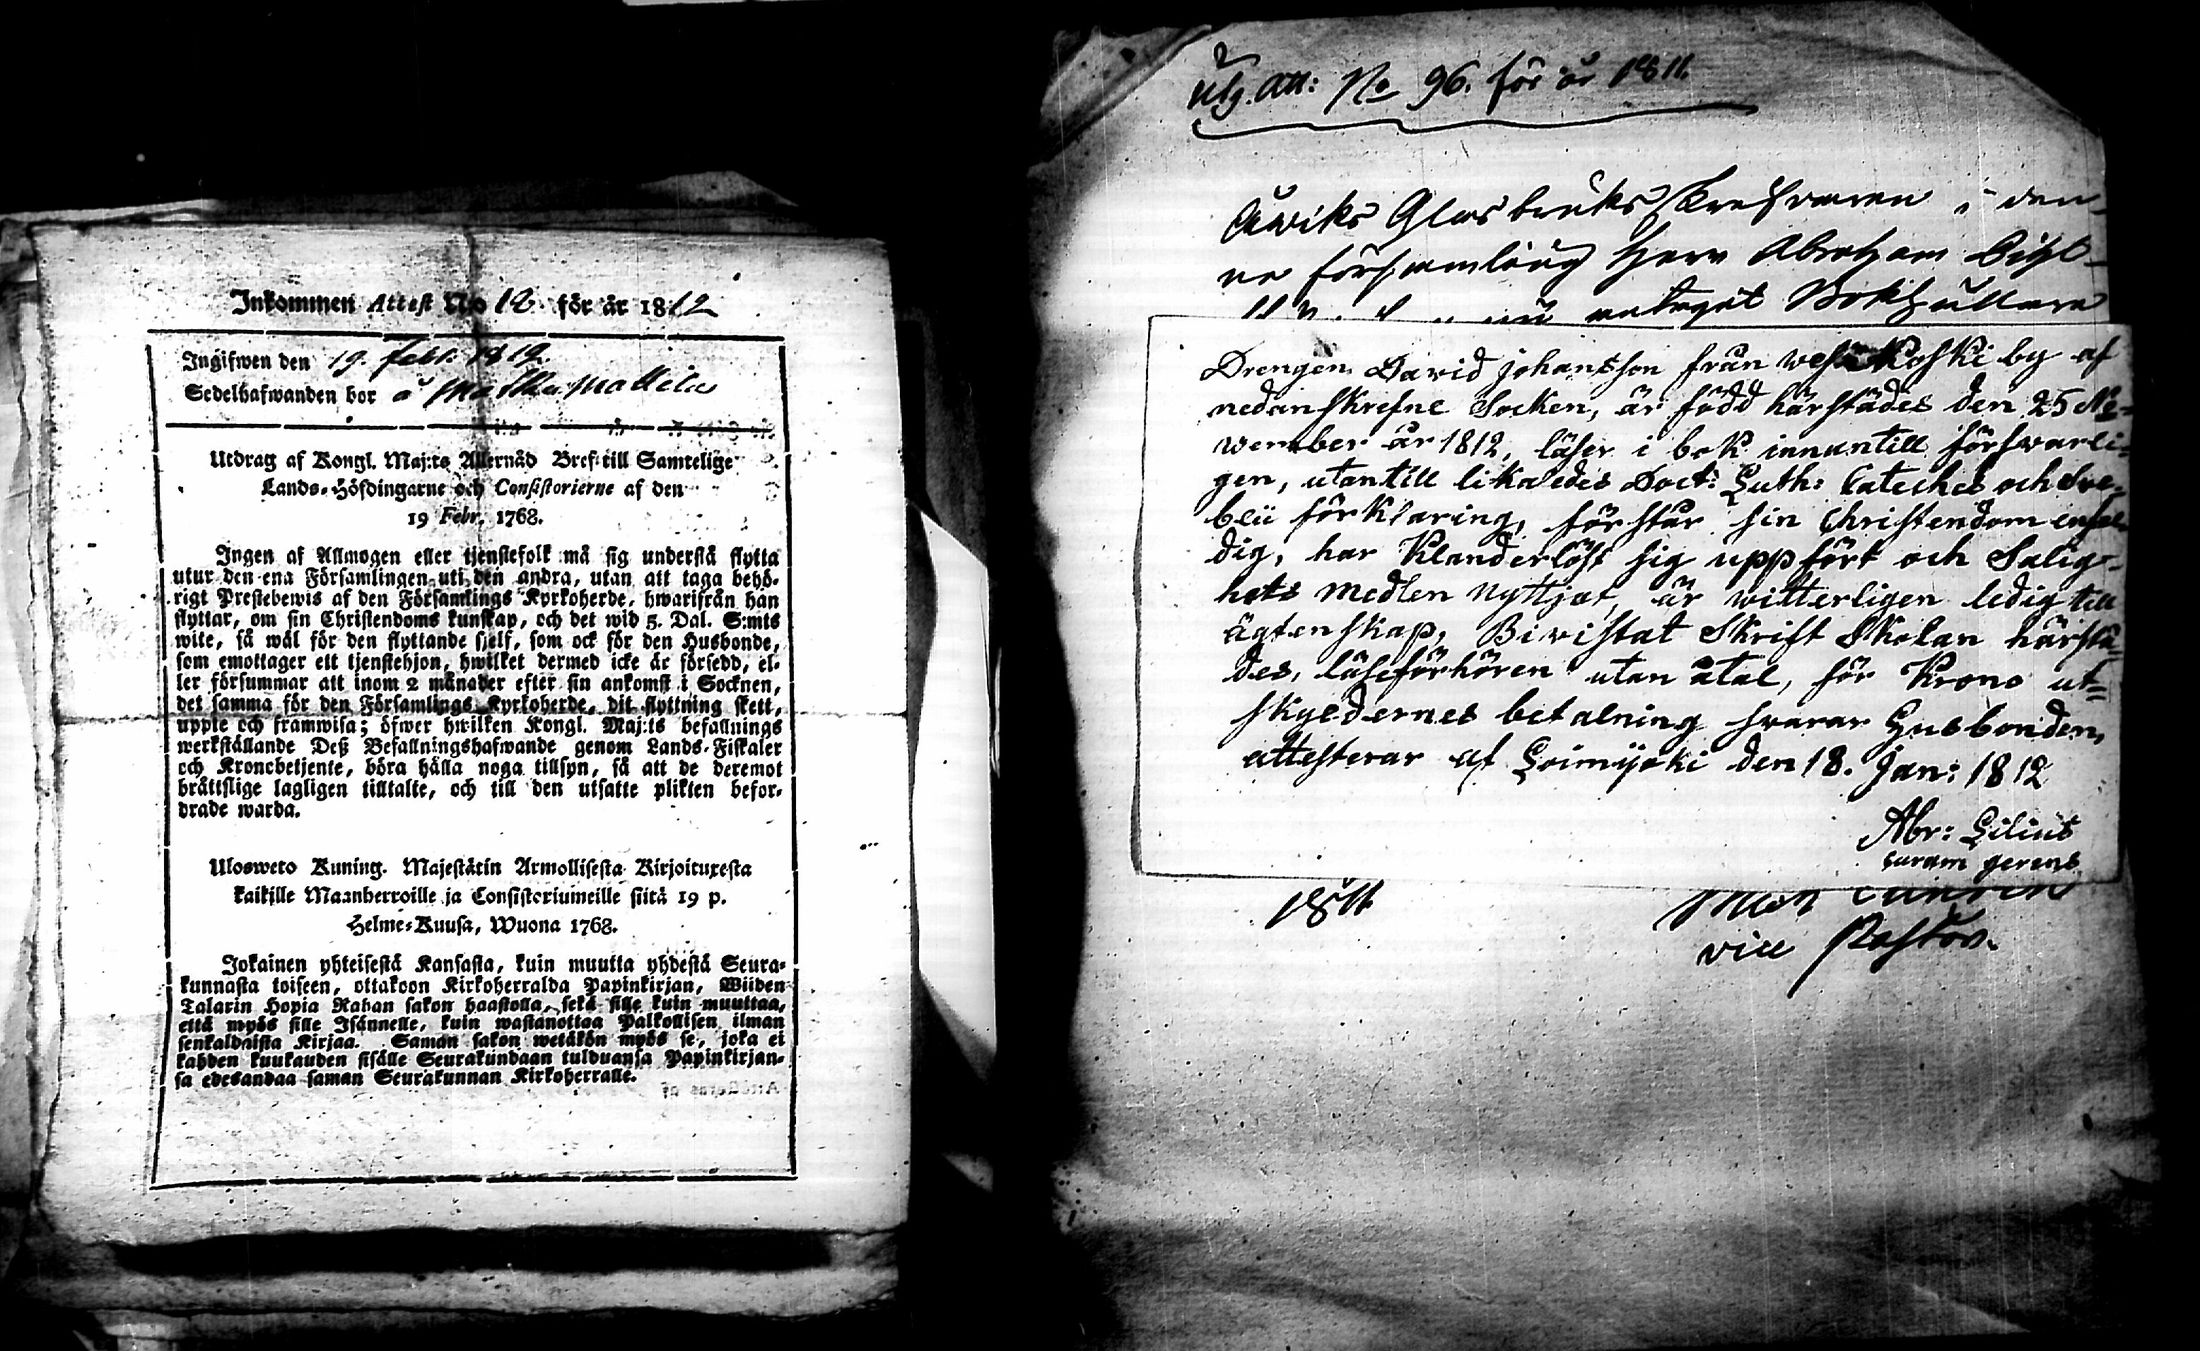 Inkommen Attest No 12. för år 1812
Ingifwen den 19. Febr. 1812.
Sedelhafwanden bor å
Utdrag af Kongl. Maj:ts Allernåd Bref till Samtelige
Lands-Höfdingarne och Consistorierne af den
19 Febr. 1768.
Ingen af Allmogen eller tjenstefolk må sig understå flytta
utur den ena Församlingen uti den andra, utan att taga behö-
rigt Prestebewis af den Församlings Kyrkoherde, hwarifrån han
flyttar, om sin Christendoms kunskap, och det wid 5. Dal. S:mts
wite, så wäl för den flyttande sjelf, som ock för den Husbonde,
som emottager ett tjenstehjon, hwilket dermed icke är försedd, el-
ler försummar att inom 2 månader efter sin ankomst i Socknen,
det samma för den Församlings Kyrkoherde, dit flyttning skett,
uppte och framwisa; öfwer hwilken Kongl. Maj:ts befallnings
werkställande Deß Befallningshafwande genom Lands-Fiskaler
och Kronebetjente, böra hålla noga tillsyn, så att de deremot
bråttslige lagligen tilltalte, och till den utsatte plikten befor-
drade warda.
Ulosweto Kuning. Majestätin Armollisesta Kirjoituxesta
kaikille Maanherroille ja Consistoriumeille siitä 19 p.
Helme-Kuusa, Wuona 1768.
Jokainen yhteisestä Kansasta, kuin muutta yhdestä Seura-
kunnasta toiseen, ottakoon Kirkoherralda Papinkirjan, Wiiden
Talarin Hopia Rahan sakon haastolla, sekä sille kuin muuttaa,
että myös sille Isännelle, kuin wastanottaa Palkollisen ilman
senkaldaista Kirjaa. Saman sakon wetäkön myös se, joka ei
kahden kuukauden sisälle Seurakundaan tulduansa Papinkirjan-
sa edesandaa saman Seurakunnan Kirkoherralle.
Utg. Att: No 96. för år 1811.
Åwiks Glasbruks i den-
na församling Herr Abraham
antagit Bokhållare
Drengen David Johansson från Koski by af
nedanskrefne Socken, är född härstädes den 25 No-
wember år 1812, läser i bok innantill förswarli-
gen, utantill likaledes Doct: Luth: Cateches och Sve-
belii förklaring, förstår sin Christendom enfal-
dig, har klanderlöst sig uppfört och Salig-
hets medlen nyttjat, är witterligen ledig till
ägtenskap, Bivistat Skrift Skolan härstä-
des, läseförhören utan åtal, för Krono ut-
skyldernes betalning svarar Husbonden,
attesterar af Loimijoki den 18. Jan: 1812
Abr: Lilius
curam gerens
1811
vice Pastor.